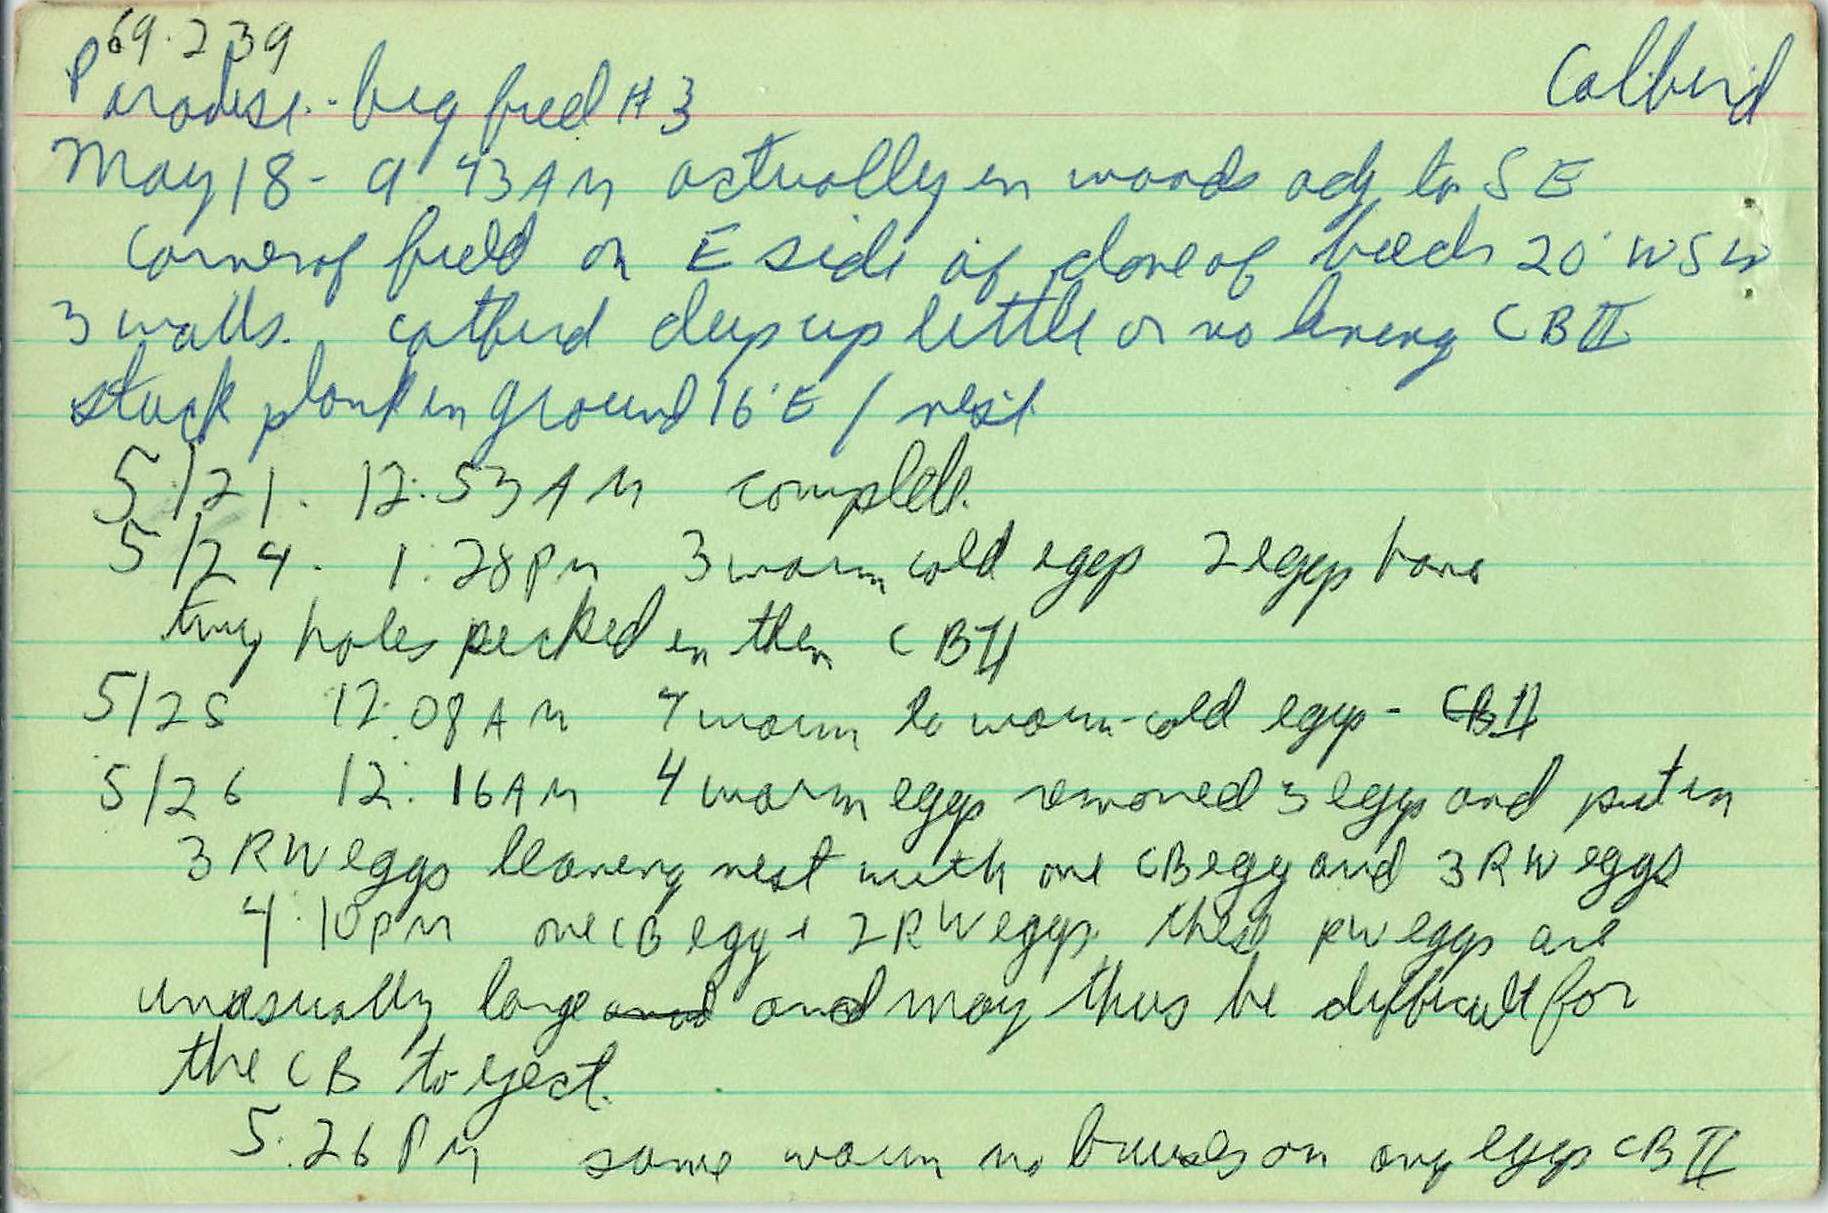 69.239
Catbird
Paradise.. big field # 3
May 18 - 9 43 AM actually in woods adj to SE
corner of field on E side of clone of beech 20' WSW
3 walls. catbird cup up little or no lining CB II
stuck plank in ground 16' E / nest.
5/21. 12:53 AM complete.
5/24. 1:28 PM 3 warm cold eggs 2 eggs have
tiny holes pecked in them CB II
5/25 12:08 AM 4 warm to warm-cold eggs - CB II
5/26 12:16 AM 4 warm eggs removed 3 eggs and put in
3 RW eggs leaving nest with one CB egg and 3 RW eggs
4:10 PM one CB egg + 2 RW eggs. these RW eggs are
unusually large and and may thus be difficult for
the CB to eject.
5:26 PM same warm no bruises on any eggs CB II